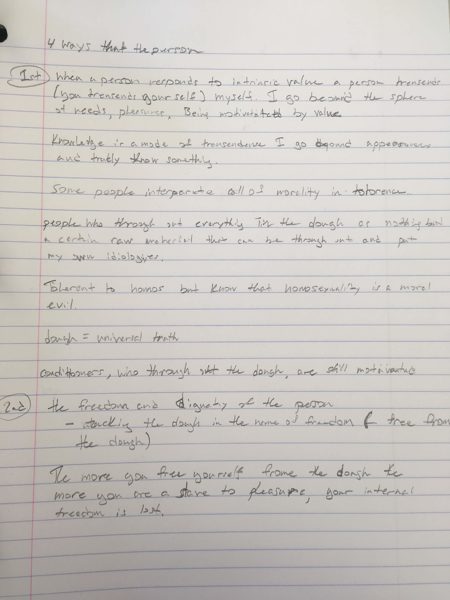 4 ways that the person
1st when a person responds to intrinsic value a person transends
(you transends your self) myself. I go beyond the sphere
of needs, pleasure, Being motivatated by value
Knowledge is a mode of transendence I go beyond appearances
and truly know something.
Some people interperate all of morality in tolorence
people who through out everything in the dough as nothing but
a certain raw material that can be through out and put
my own idiologies.
Tolerent to homos but know that homosexuality is a moral
evil.
dough = universal truth
conditioners, who through out the dough, are still motivated
2nd the freedom and dignaty of the person
- the dough in the name of freedom ( free from
the dough)
The more you free yourself frome the dough the
more you are a slave to pleasure, your internal
freedom is lost.